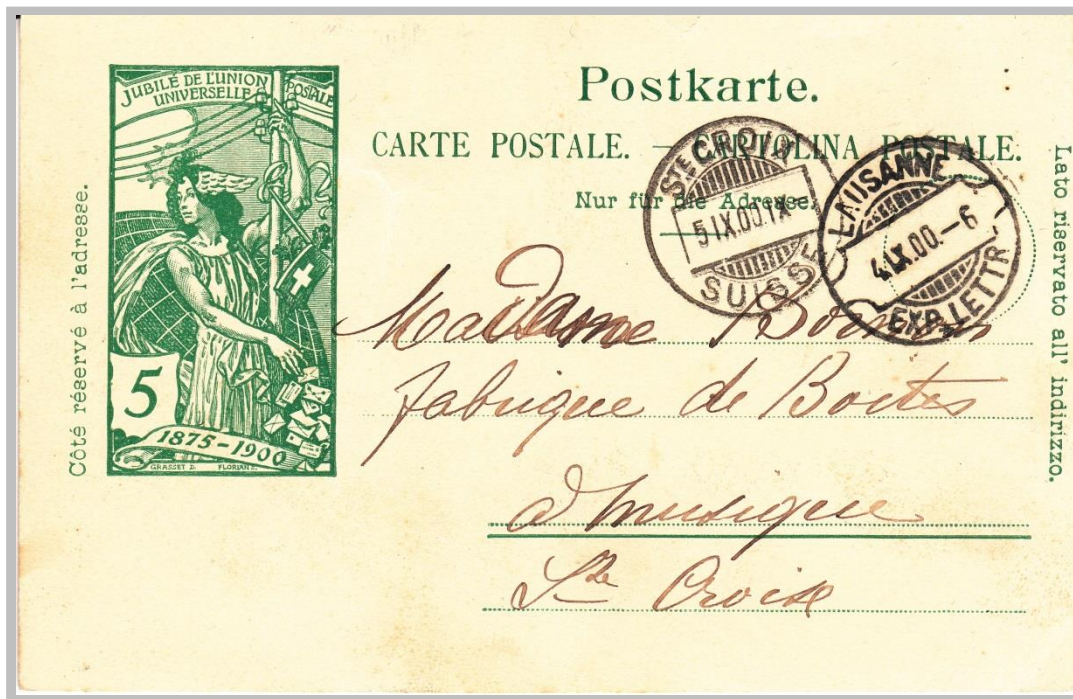 JUBILÉ DE L'UNION
POSTALE
UNIVERSELLE
5
1875-1900
GRASSET D. FLORIAN S.
Côté réservé à l'adresse.
Postkarte.
CARTE POSTALE. — CARTOLINA POSTALE.
Nur für die Adresse.
STE CROIX
5 IX.00.IX
SUISSE
LAUSANNE
4.IX.00.-6
EXP. LETTR.
Madame
fabrique de Boites
d musique
Ste Croix
Lato riservato all' indirizzo.